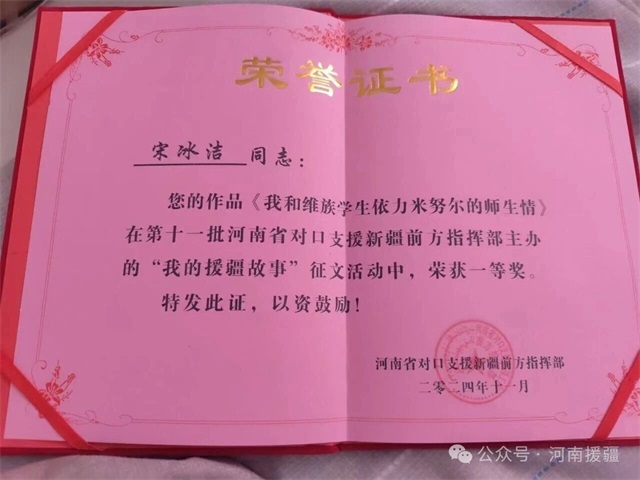 荣誉证书
宋冰洁 同志：
您的作品《我和维族学生依力米努尔的师生情》
在第十一批河南省对口支援新疆前方指挥部主办
的“我的援疆故事”征文活动中，荣获一等奖。
特发此证，以资鼓励！
河南省对口支援新疆前方指挥部
二零二四年十一月
公众号·河南援疆